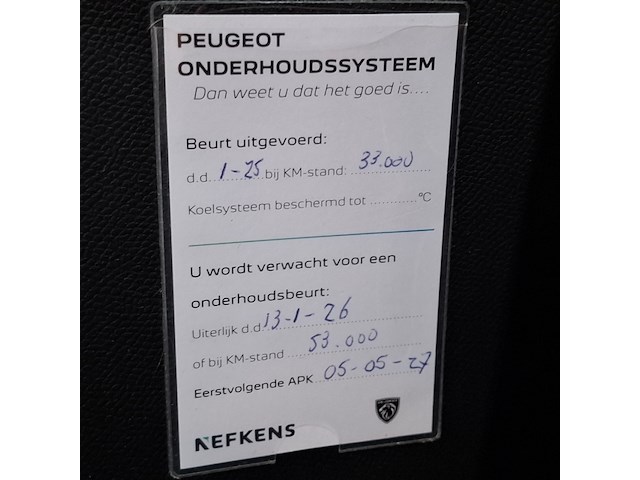 PEUGEOT
ONDERHOUDSSYSTEEM
Dan weet u dat het goed is....
Beurt uitgevoerd:
d.d. 1-25 bij KM-stand: 33.000
Koelsysteem beschermd tot ............°C
U wordt verwacht voor een
onderhoudsbeurt:
Uiterlijk d.d. 13-1-26
of bij KM-stand 53.000
Eerstvolgende APK 05-05-27
NEFKENS